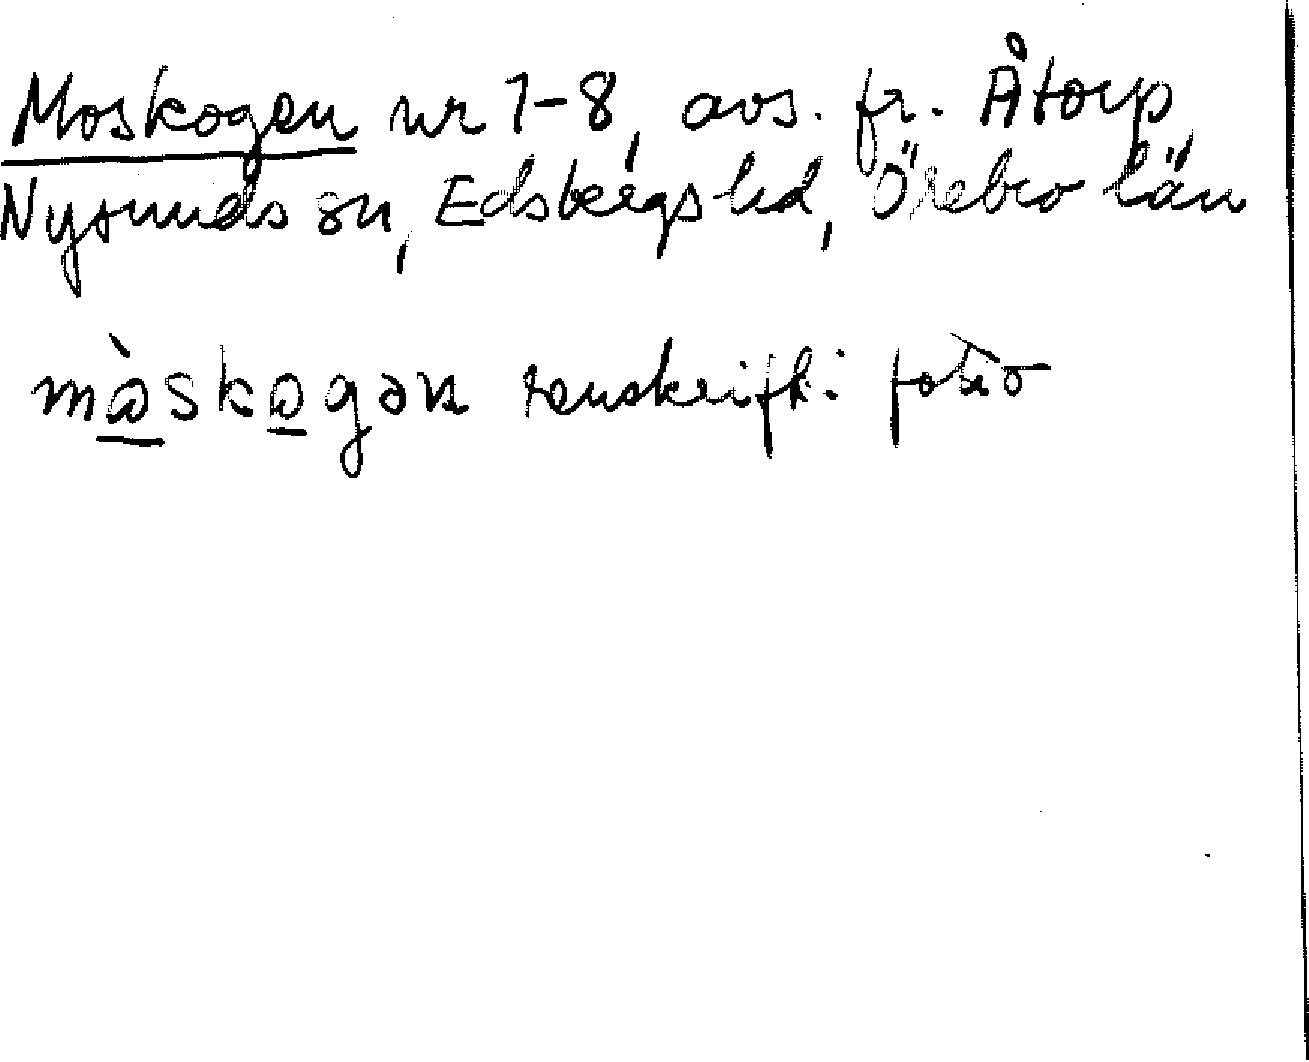 Moskogen nr 1-8, avs. fr. Åtorp,
Nysunds sn, Edsbergs hd, Örebro län
mòskogən transkrift: